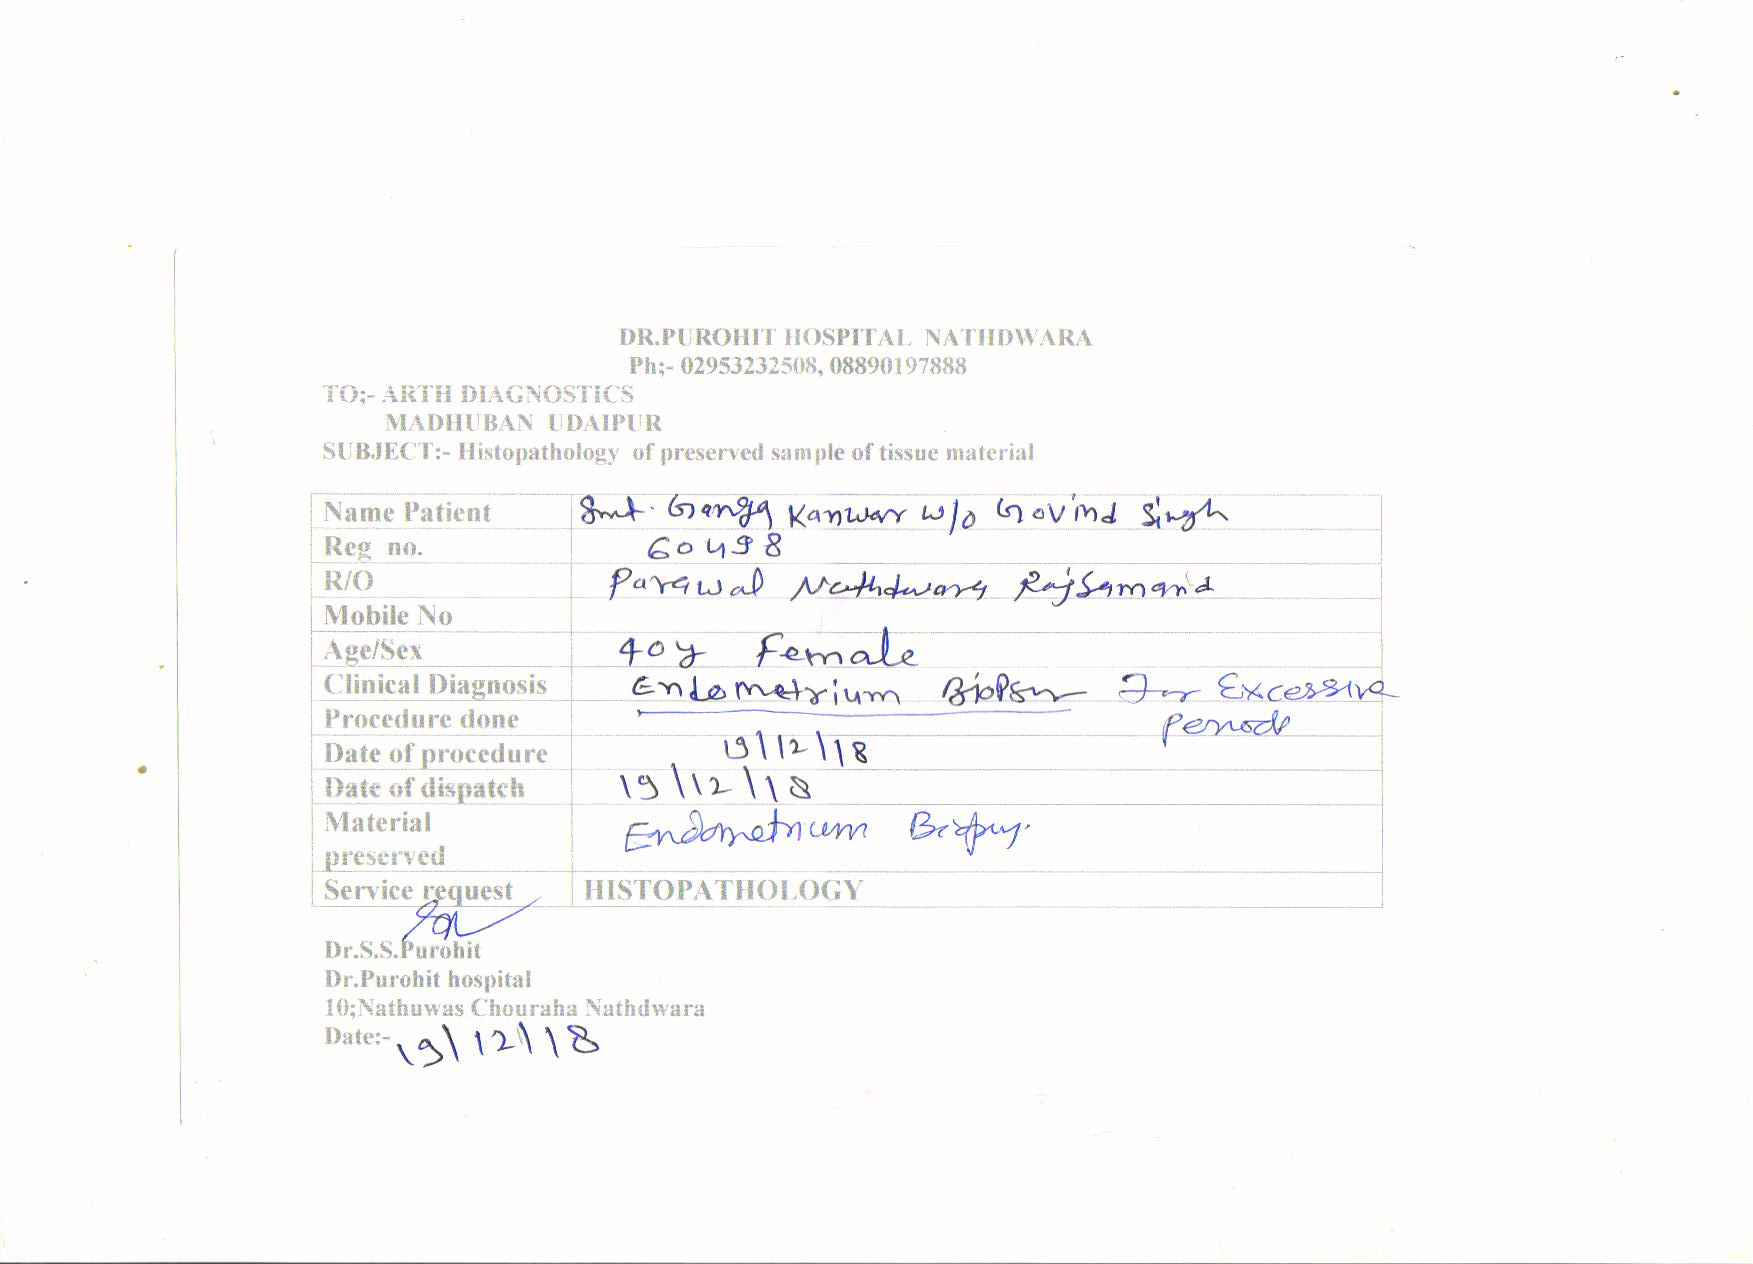 DR.PUROHIT HOSPITAL NATHDWARA
Ph;- 02953232508, 08890197888
TO;- ARTH DIAGNOSTICS
MADHUBAN UDAIPUR
SUBJECT:- Histopathology of preserved sample of tissue material
Name Patient Smt. Ganga Kanwar w/o Govind Singh
Reg no. 60498
R/O Parawal Nathdwara Rajsamand
Mobile No
Age/Sex 40y Female
Clinical Diagnosis Endometrium Biopsy For Excessive
Procedure done Periods
Date of procedure 19/12/18
Date of dispatch 19/12/18
Material Endometrium Biopsy.
preserved
Service request HISTOPATHOLOGY
Dr.S.S.Purohit
Dr.Purohit hospital
10;Nathuwas Chouraha Nathdwara
Date:- 19/12/18